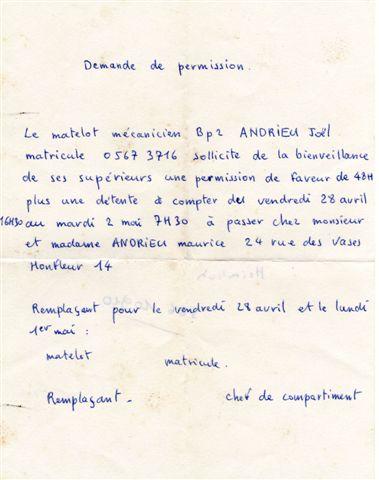 Demande de permission.
Le matelot mécanicien Bp2 ANDRIEU Joël
matricule 0567 3716 sollicite de la bienveillance
de ses supérieurs une permission de faveur de 48H
plus une détente à compter du vendredi 28 avril
16H30 au mardi 2 mai 7H30 à passer chez monsieur
et madame ANDRIEU maurice 24 rue des Vases
Honfleur 14
Remplaçant pour le vendredi 28 avril et le lundi
1er mai :
matelot matricule.
Remplaçant - chef de compartiment